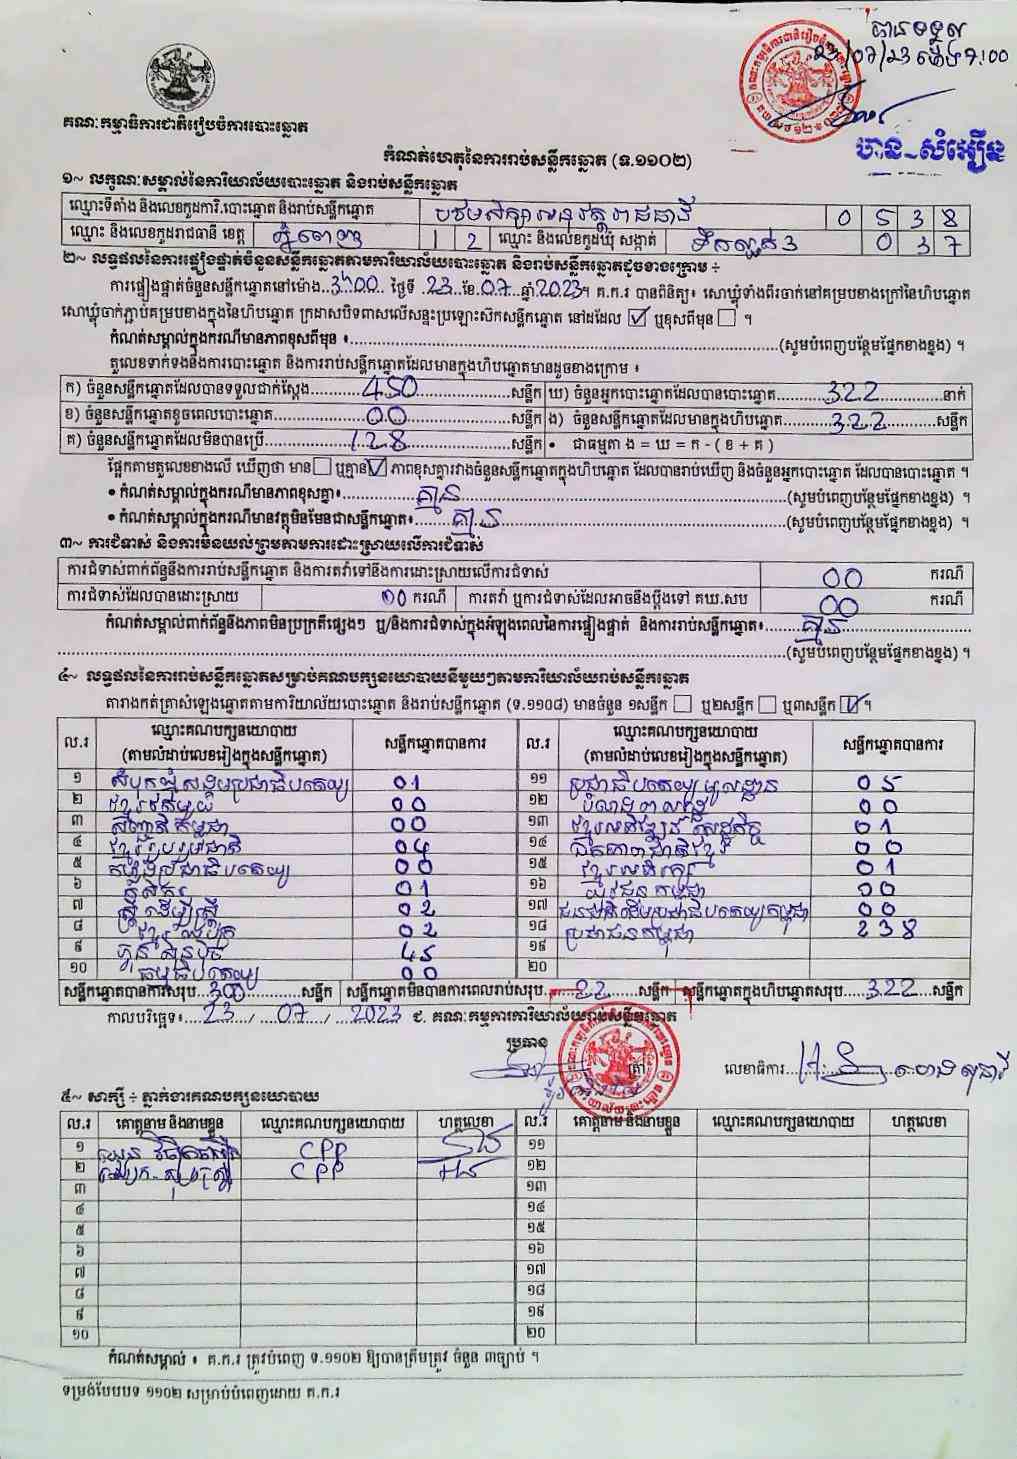 បានទទួល
23/07/23 ម៉ោង 7:00
បាន-សំអឿន
គណៈកម្មាធិការជាតិរៀបចំការបោះឆ្នោត
កំណត់ហេតុនៃការរាប់សន្លឹកឆ្នោត (ទ.១១០២)
១~ លក្ខណៈសម្គាល់នៃការិយាល័យបោះឆ្នោត និងរាប់សន្លឹកឆ្នោត
ឈ្មោះទីតាំង និងលេខកូដការិ.បោះឆ្នោត និងរាប់សន្លឹកឆ្នោត 0 5 3 8
ឈ្មោះ និងលេខកូដរាជធានី ខេត្ត ភ្នំពេញ 1 2 ឈ្មោះ និងលេខកូដឃុំ សង្កាត់ ទឹកល្អក់3 0 3 7
២~ លទ្ធផលនៃការផ្ទៀងផ្ទាត់ចំនួនសន្លឹកឆ្នោតតាមការិយាល័យបោះឆ្នោត និងរាប់សន្លឹកឆ្នោតដូចខាងក្រោម ÷
ការផ្ទៀងផ្ទាត់ចំនួនសន្លឹកឆ្នោតនៅម៉ោង 3:00 ថ្ងៃទី 23 ខែ 07 ឆ្នាំ 2023។ គ.ក.រ បានពិនិត្យ៖ សោឃ្លុំទាំងពីរចាក់នៅគម្របខាងក្រៅនៃហិបឆ្នោត
សោឃ្លុំចាក់ភ្ជាប់គម្របខាងក្នុងនៃហិបឆ្នោត ក្រដាសបិទពាសលើសន្ទះប្រឡោះសឹកសន្លឹកឆ្នោត នៅដដែល ☑ ឬខុសពីមុន ☐ ។
កំណត់សម្គាល់ក្នុងករណីមានភាពខុសពីមុន ៖ (សូមបំពេញបន្ថែមផ្នែកខាងខ្នង) ។
តួលេខទាក់ទងនឹងការបោះឆ្នោត និងការរាប់សន្លឹកឆ្នោតដែលមានក្នុងហិបឆ្នោតមានដូចខាងក្រោម ៖
ក) ចំនួនសន្លឹកឆ្នោតដែលបានទទួលជាក់ស្តែង 450 សន្លឹក ឃ) ចំនួនអ្នកបោះឆ្នោតដែលបានបោះឆ្នោត 322 នាក់
ខ) ចំនួនសន្លឹកឆ្នោតខូចពេលបោះឆ្នោត 00 សន្លឹក ង) ចំនួនសន្លឹកឆ្នោតដែលមានក្នុងហិបឆ្នោត 322 សន្លឹក
គ) ចំនួនសន្លឹកឆ្នោតដែលមិនបានប្រើ 128 សន្លឹក • ជាធម្មតា ង = ឃ = ក - ( ខ + គ )
ផ្អែកតាមតួលេខខាងលើ ឃើញថា មាន ☐ ឬគ្មាន ☑ ភាពខុសគ្នារវាងចំនួនសន្លឹកឆ្នោតក្នុងហិបឆ្នោត ដែលបានរាប់ឃើញ និងចំនួនអ្នកបោះឆ្នោត ដែលបានបោះឆ្នោត ។
• កំណត់សម្គាល់ក្នុងករណីមានភាពខុសគ្នា៖ គ្មាន (សូមបំពេញបន្ថែមផ្នែកខាងខ្នង) ។
• កំណត់សម្គាល់ក្នុងករណីមានវត្ថុមិនមែនជាសន្លឹកឆ្នោត៖ គ្មាន (សូមបំពេញបន្ថែមផ្នែកខាងខ្នង) ។
៣~ ការជំទាស់ និងការមិនយល់ព្រមតាមការដោះស្រាយលើការជំទាស់
ការជំទាស់ពាក់ព័ន្ធនឹងការរាប់សន្លឹកឆ្នោត និងការតវ៉ាទៅនឹងការដោះស្រាយលើការជំទាស់ 00 ករណី
ការជំទាស់ដែលបានដោះស្រាយ 00 ករណី ការតវ៉ា ឬការជំទាស់ដែលអាចនឹងប្តឹងទៅ គឃ.សប 00 ករណី
កំណត់សម្គាល់ពាក់ព័ន្ធនឹងភាពមិនប្រក្រតីផ្សេងៗ ឬ/និងការជំទាស់ក្នុងអំឡុងពេលនៃការផ្ទៀងផ្ទាត់ និងការរាប់សន្លឹកឆ្នោត៖ គ្មាន
(សូមបំពេញបន្ថែមផ្នែកខាងខ្នង) ។
៤~ លទ្ធផលនៃការរាប់សន្លឹកឆ្នោតសម្រាប់គណបក្សនយោបាយនីមួយៗតាមការិយាល័យរាប់សន្លឹកឆ្នោត
តារាងកត់ត្រាសំឡេងឆ្នោតតាមការិយាល័យបោះឆ្នោត និងរាប់សន្លឹកឆ្នោត (ទ.១១០៨) មានចំនួន ១សន្លឹក ☐ ឬ២សន្លឹក ☐ ឬ៣សន្លឹក ☑ ។
ល.រ ឈ្មោះគណបក្សនយោបាយ (តាមលំដាប់លេខរៀងក្នុងសន្លឹកឆ្នោត) សន្លឹកឆ្នោតបានការ ល.រ ឈ្មោះគណបក្សនយោបាយ (តាមលំដាប់លេខរៀងក្នុងសន្លឹកឆ្នោត) សន្លឹកឆ្នោតបានការ
១ សំបុកឃ្មុំសង្គមប្រជាធិបតេយ្យ 01 ១១ ប្រជាធិបតេយ្យមូលដ្ឋាន 05
២ ខ្មែរតែមួយ 00 ១២ 00
៣ សញ្ជាតិកម្ពុជា 00 ១៣ ខ្មែរអភិវឌ្ឍន៍សេដ្ឋកិច្ច 01
៤ ខ្មែររួបរួមជាតិ 04 ១៤ ឯកភាពជាតិខ្មែរ 00
៥ កម្លាំងប្រជាធិបតេយ្យ 00 ១៥ ខ្មែរអភិរក្ស 01
៦ កសិករ 01 ១៦ យុវជនកម្ពុជា 00
៧ ស្ត្រីដើម្បីស្ត្រី 02 ១៧ ជនជាតិដើមប្រជាធិបតេយ្យកម្ពុជា 00
៨ ខ្មែរឈប់ក្រ 02 ១៨ ប្រជាជនកម្ពុជា 238
៩ ហ្វ៊ុនស៊ិនប៉ិច 45 ១៩
១០ ធម្មាធិបតេយ្យ 00 ២០
សន្លឹកឆ្នោតបានការសរុប 300 សន្លឹក សន្លឹកឆ្នោតមិនបានការពេលរាប់សរុប 22 សន្លឹក សន្លឹកឆ្នោតក្នុងហិបឆ្នោតសរុប 322 សន្លឹក
កាលបរិច្ឆេទ៖ 23 / 07 / 2023 ជ. គណៈកម្មការការិយាល័យរាប់សន្លឹកឆ្នោត
ប្រធាន ត្រា លេខាធិការ
៥~ សាក្សី ÷ ភ្នាក់ងារគណបក្សនយោបាយ
ល.រ គោត្តនាម និងនាមខ្លួន ឈ្មោះគណបក្សនយោបាយ ហត្ថលេខា ល.រ គោត្តនាម និងនាមខ្លួន ឈ្មោះគណបក្សនយោបាយ ហត្ថលេខា
១ CPP ១១
២ CPP ១២
៣ ១៣
៤ ១៤
៥ ១៥
៦ ១៦
៧ ១៧
៨ ១៨
៩ ១៩
១០ ២០
កំណត់សម្គាល់ ៖ គ.ក.រ ត្រូវបំពេញ ទ.១១០២ ឱ្យបានត្រឹមត្រូវ ចំនួន ៣ច្បាប់ ។
ទម្រង់បែបបទ ១១០២ សម្រាប់បំពេញដោយ គ.ក.រ